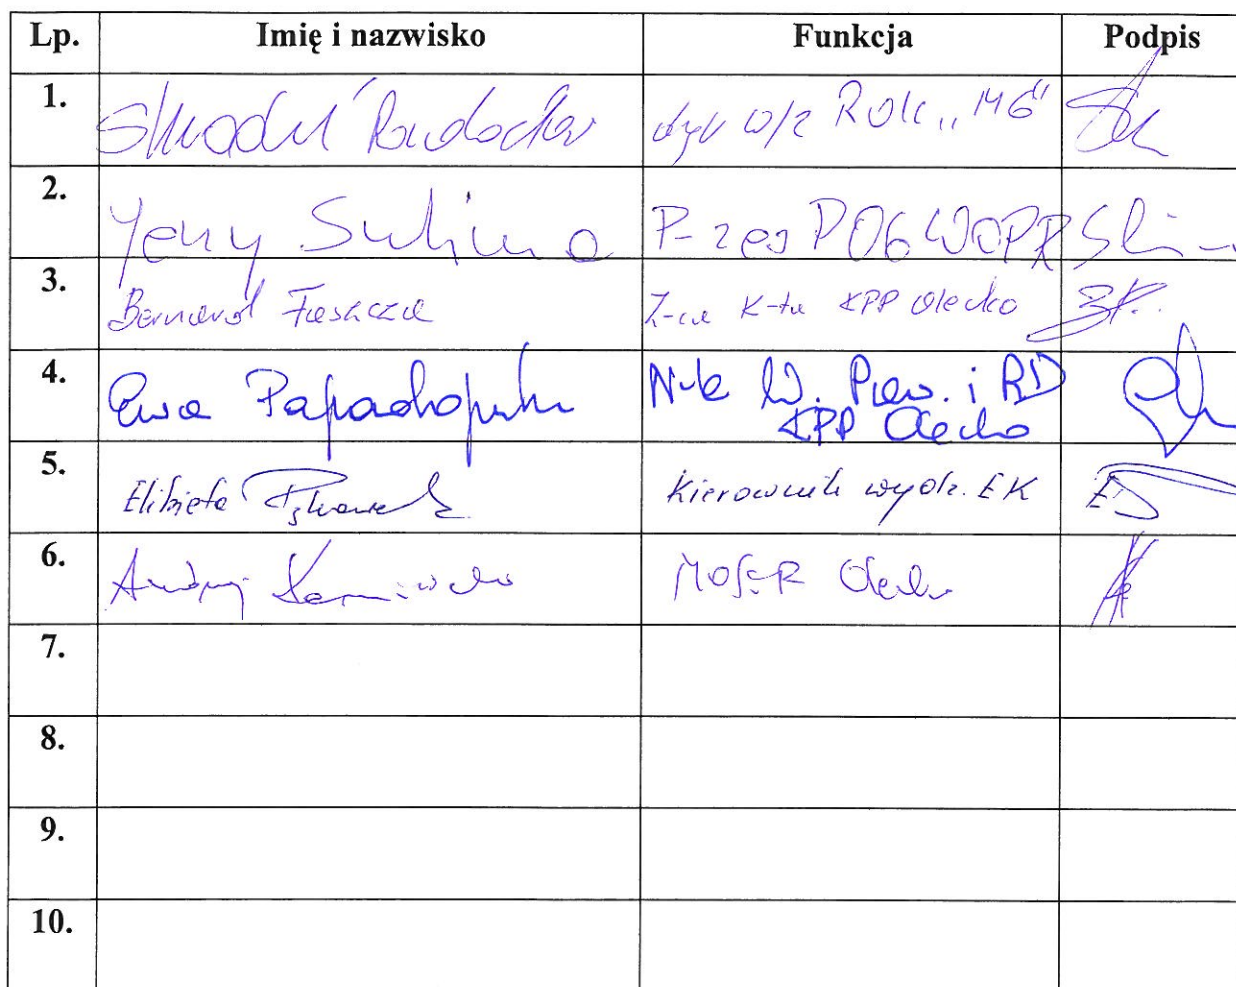 Lp. Imię i nazwisko Funkcja Podpis
1. W/Z ROK „MG"
2. Jerzy Sulima P-zes POG WOPR
3. Bernard Faszcza Z-ca K-ta KPP Olecko
4. Ewa N-k W. Prew. i RD
KPP Olecko
5. Elżbieta Kierownik wydz. EK
6. Andrzej Kamiński MOSiR Olecko
7.
8.
9.
10.